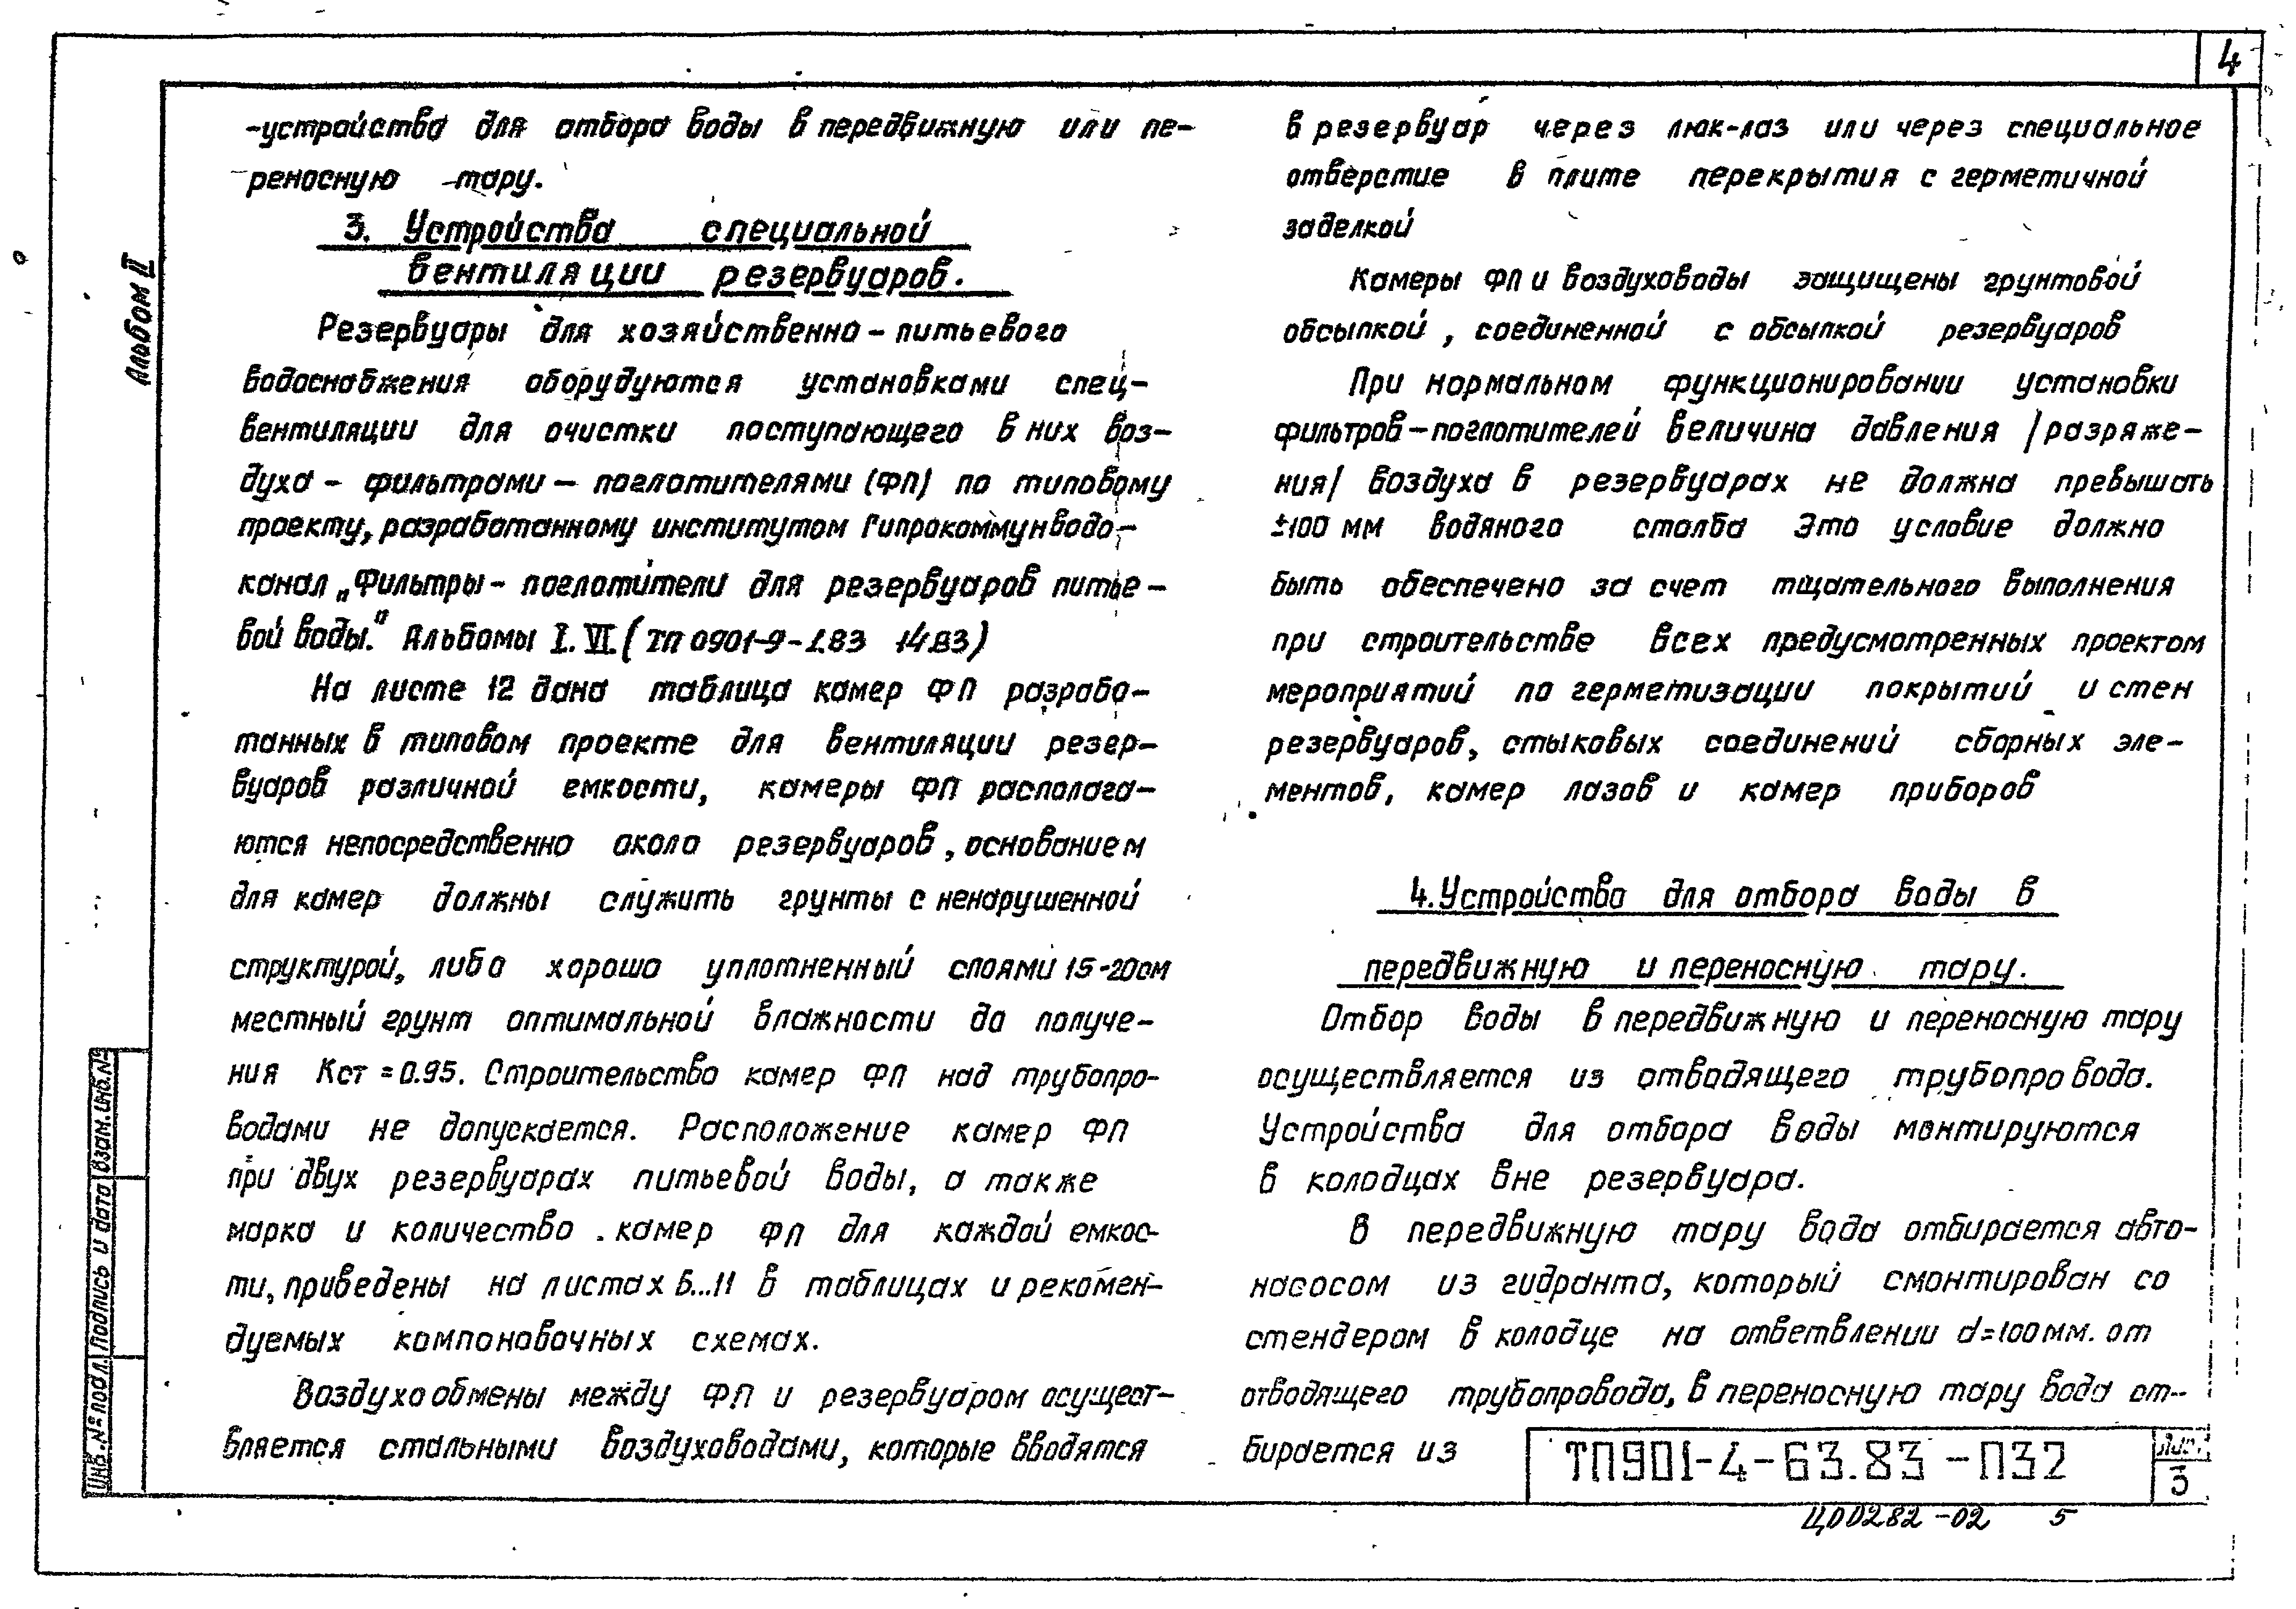 4
Альбом II
-устройства для отбора воды в передвижную или пе-
реносную тару.
3. Устройства специальной
вентиляции резервуаров.
Резервуары для хозяйственно-питьевого
водоснабжения оборудуются установками спец-
вентиляции для очистки поступающего в них воз-
духа - фильтрами - поглотителями (ФП) по типовому
проекту, разработанному институтом Гипрокоммунводо-
канал „Фильтры- поглотители для резервуаров питье-
вой воды." Альбомы I. VI. (ТП 0901-9-1.83 14.83)
На листе 12 дана таблица камер ФП разрабо-
танных в типовом проекте для вентиляции резер-
вуаров различной емкости, камеры ФП располага-
ются непосредственно около резервуаров, основанием
для камер должны служить грунты с ненарушенной
структурой, либо хорошо уплотненный слоями 15-20см
местный грунт оптимальной влажности до получе-
ния Кст = 0.95. Строительство камер ФП над трубопро-
водами не допускается. Расположение камер ФП
при двух резервуарах питьевой воды, а также
марка и количество камер ФП для каждой емкос-
ти, приведены на листах 6...11 в таблицах и рекомен-
дуемых компоновочных схемах.
Воздухообмены между ФП и резервуаром осущест-
вляется стальными воздуховодами, которые вводятся
в резервуар через люк-лаз или через специальное
отверстие в плите перекрытия с герметичной
заделкой
Камеры ФП и воздуховоды защищены грунтовой
обсыпкой, соединенной с обсыпкой резервуаров
При нормальном функционировании установки
фильтров-поглотителей величина давления /разряже-
ния/ воздуха в резервуарах не должна превышать
±100 мм водяного столба Это условие должно
быть обеспечено за счет тщательного выполнения
при строительстве всех предусмотренных проектом
мероприятий по герметизации покрытий и стен
резервуаров, стыковых соединений сборных эле-
ментов, камер лазов и камер приборов
4. Устройства для отбора воды в
передвижную и переносную тару.
Отбор воды в передвижную и переносную тару
осуществляется из отводящего трубопровода.
Устройства для отбора воды монтируются
в колодцах вне резервуара.
В передвижную тару вода отбирается авто-
насосом из гидранта, который смонтирован со
стендером в колодце на ответвлении d=100мм. от
отводящего трубопровода, в переносную тару вода от-
бирается из
Инв.№ подл. Подпись и дата Взам.инв.№
ТП901-4-63.83-ПЗ2
Лист
3
ЦОО282-02 5